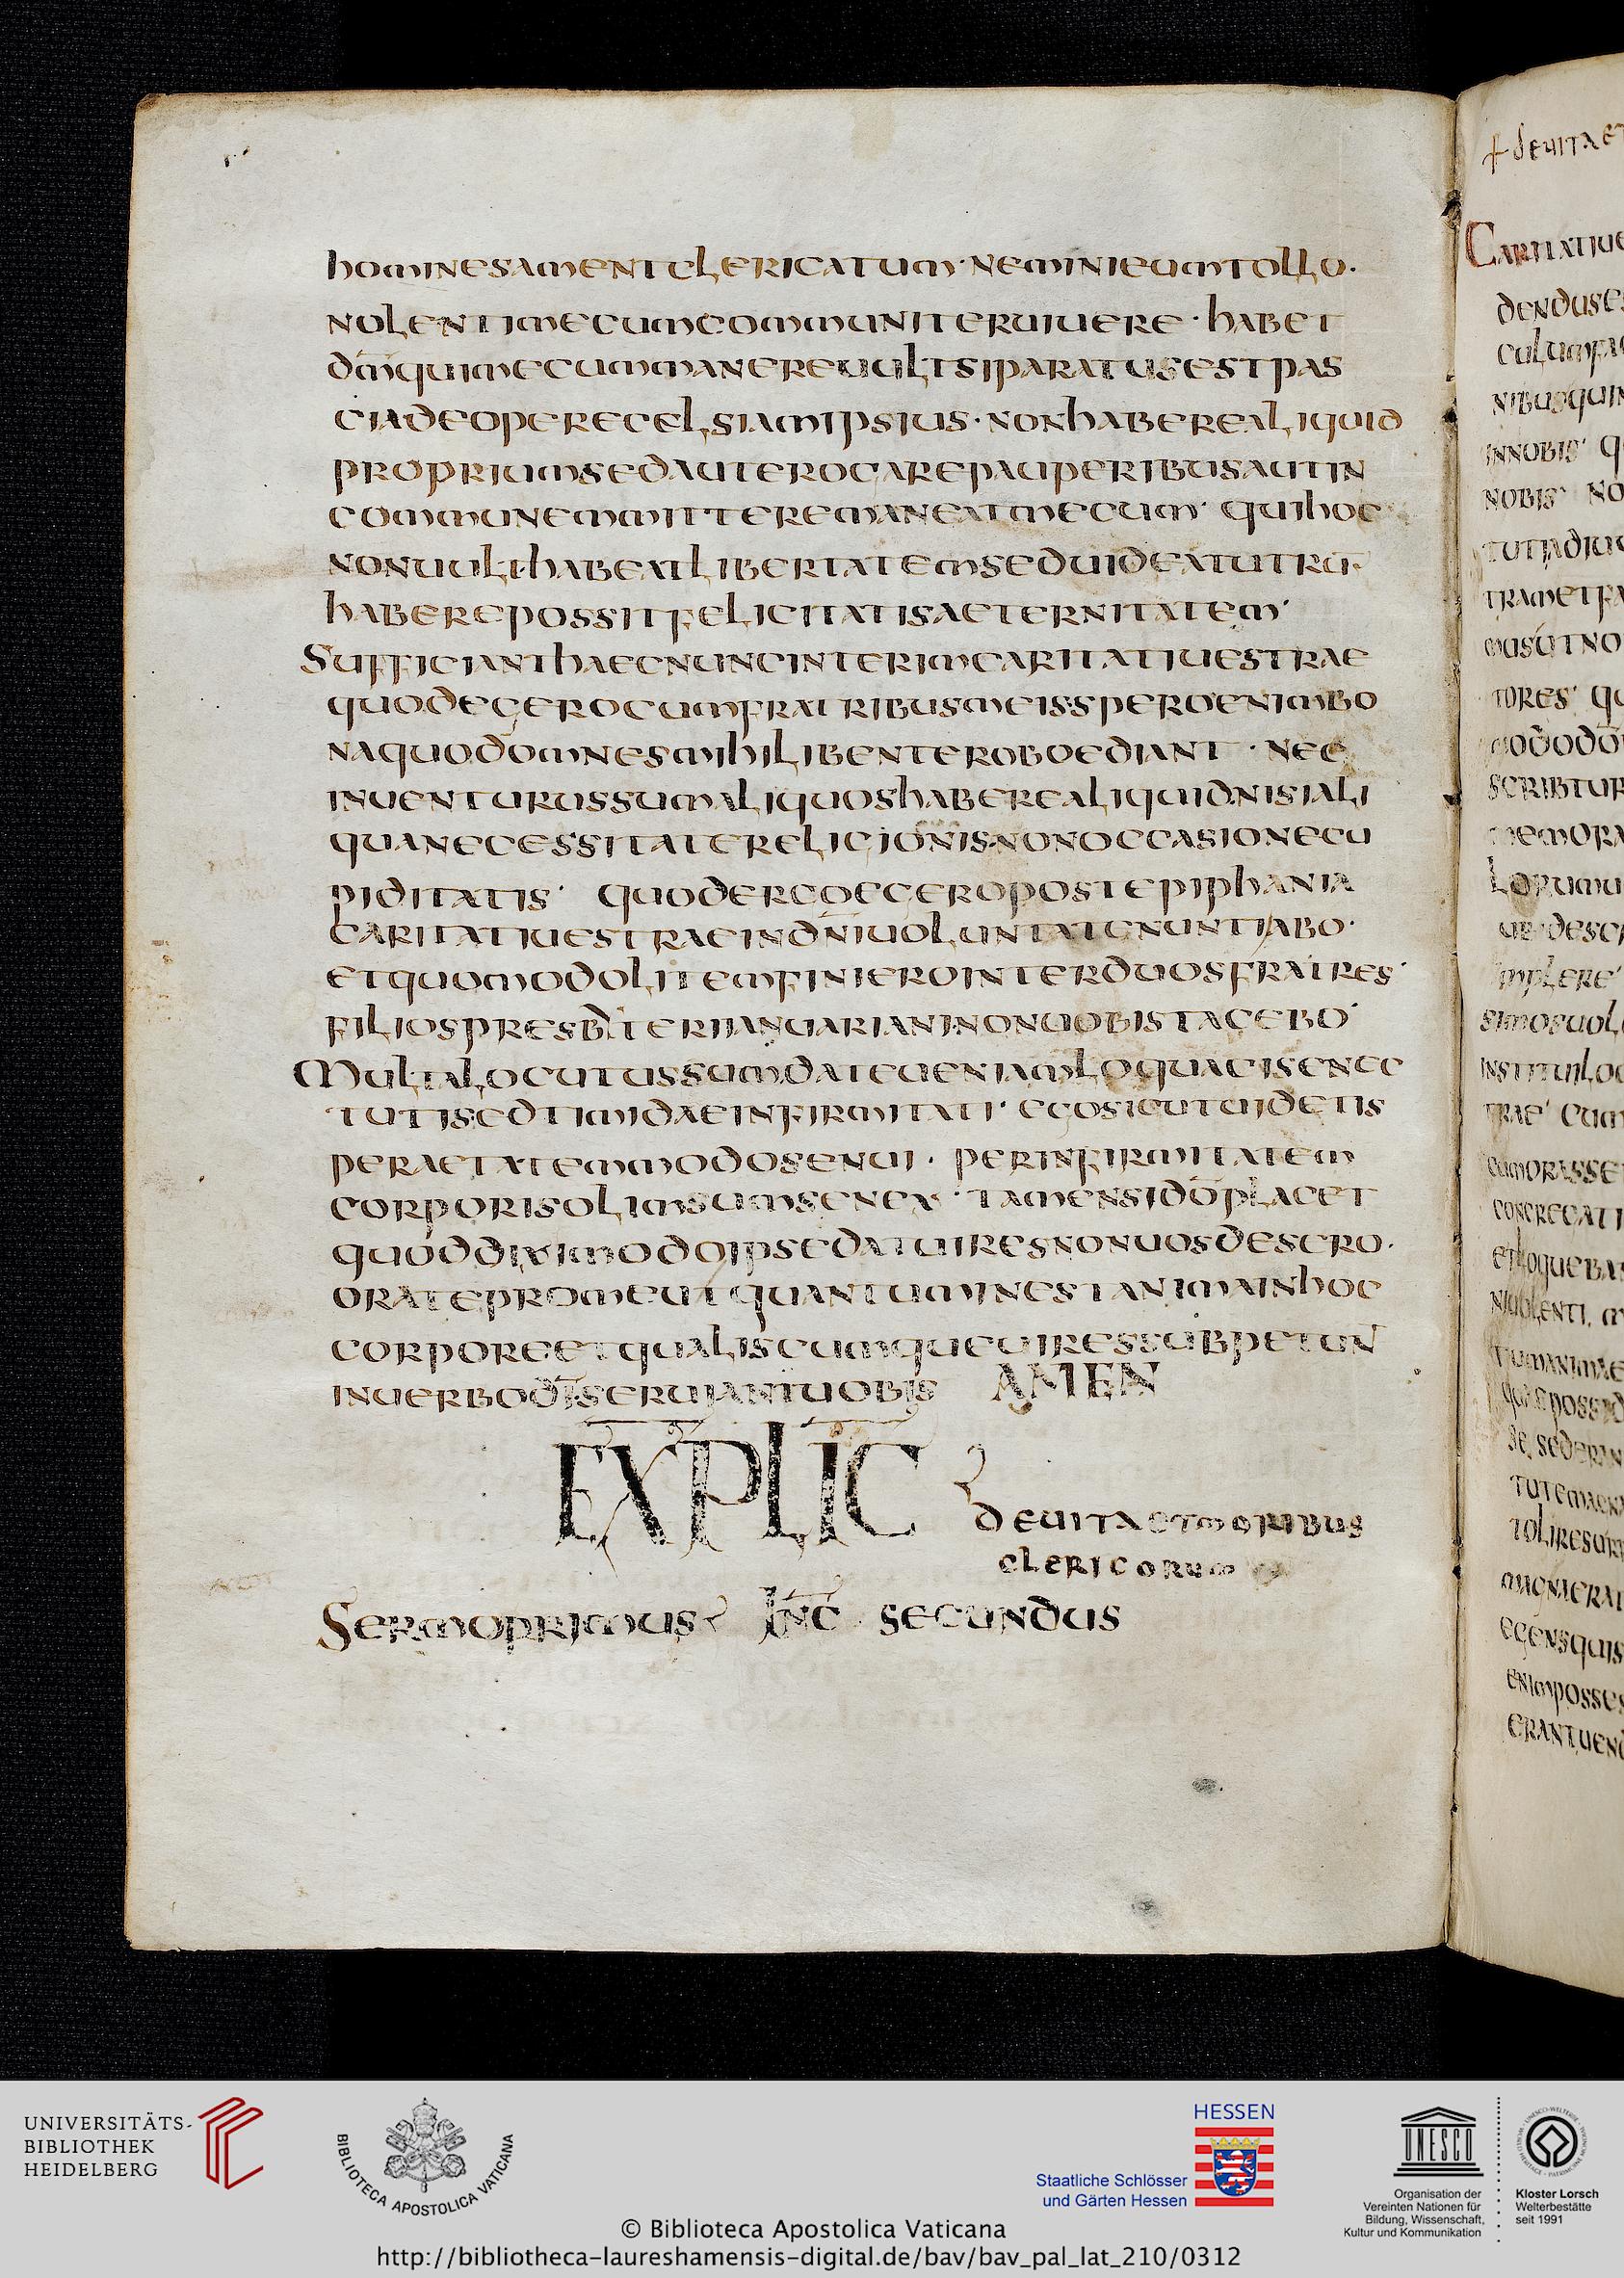 hominesamentclericatum·neminieumtollo·
nolentimecumcommuniteruiuere·habet
dm̄quimecummanereuultsiparatusestpas
ciadeoperecclsiamipsius·nonhaberealiquid
propriumsedauterogarepauperibusautin
communemmitteremaneatmecum·quihoc
nonuulthabeatlibertatemseduideatutrū
haberepossitfelicitatisaeternitatem·
Sufficianthaecnuncinterimcaritatiuestrae
quodegerocumfratribusmeissperoenimbo
naquodomnesmihilibenteroboediant·nec
inventurussumaliquoshaberealiquidnisiali
quanecessitatereligionisnonoccasionecu
piditatis· quodergoegeropostepiphania
caritatiuestraeindn̄iuoluntatenuntiabo·
etquomodolitemfinierointerduosfratres·
filiospresbiteriianuarianinonuobistacebo·
Multalocutussumdateueniamloquacisenec
tutisedtimidaeinfirmitati·egosicutuidetis
peraetatemmodosenui·perinfirmitatem
corporisolimsumsenex·tamensidō placet
quoddiximodoipsedatuiresnonuosdesero·
oratepromeutquantuminestanimainhoc
corporeetqualiscumqueuiressubpetun̄
inuerbodīseruiantuobis AMEN
EXPLIC
deuitaetmoribus
clericorum
Sermoprimus INC secundus
+deuitaet
Caritatiue
denduses
nibusquin
innobis· q
nobis· no
trametfa
musutno
tores· qu
scribtur
memora
implere·
simosuol
trae· cum
congregati
etloqueba
quaeposs
egensquis
enimposses
erantuend
UNIVERSITÄTS-
BIBLIOTHEK
HEIDELBERG
BIBLIOTECA APOSTOLICA VATICANA
HESSEN
Staatliche Schlösser
und Gärten Hessen
UNESCO
Organisation der
Vereinten Nationen für
Bildung, Wissenschaft,
Kultur und Kommunikation
Kloster Lorsch
Welterbestätte
seit 1991
© Biblioteca Apostolica Vaticana
http://bibliotheca-laureshamensis-digital.de/bav/bav_pal_lat_210/0312